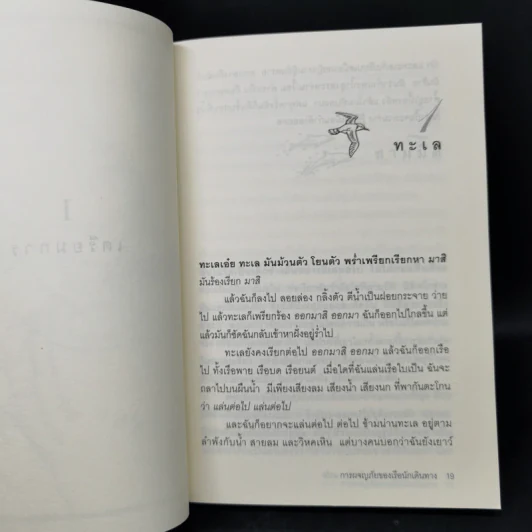 1
ทะเล
ทะเลเอ๋ย ทะเล มันม้วนตัว โยนตัว พร่ำเพรียกเรียกหา มาสิ
มันร้องเรียก มาสิ
แล้วฉันก็ลงไป ลอยล่อง กลิ้งตัว ตีน้ำเป็นฝอยกระจาย ว่าย
ไป แล้วทะเลก็เพรียกร้อง ออกมาสิ ออกมา ฉันก็ออกไปไกลขึ้น แต่
แล้วมันก็ซัดฉันกลับเข้าหาฝั่งอยู่ร่ำไป
ทะเลยังคงเรียกต่อไป ออกมาสิ ออกมา แล้วฉันก็ออกเรือ
ไป ทั้งเรือพาย เรือบด เรือยนต์ เมื่อใดที่ฉันแล่นเรือใบเป็น ฉันจะ
ถลาไปบนผืนน้ำ มีเพียงเสียงลม เสียงน้ำ เสียงนก ที่พากันตะโกน
ว่า แล่นต่อไป แล่นต่อไป
และฉันก็อยากจะแล่นต่อไป ต่อไป ข้ามน่านทะเล อยู่ตาม
ลำพังกับน้ำ สายลม และวิหคเหิน แต่บางคนบอกว่าฉันยังเยาว์
การผจญภัยของเรือนักเดินทาง 19
I
เตรียมการ